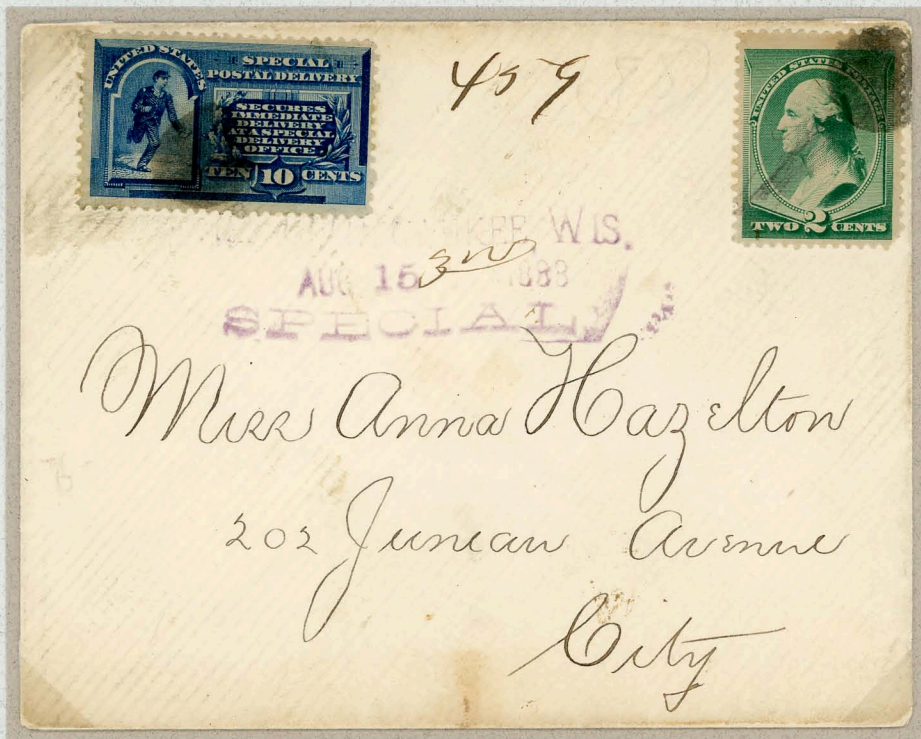 UNITED STATES
SPECIAL
POSTAL DELIVERY
SECURES
IMMEDIATE
DELIVERY
AT A SPECIAL
DELIVERY
OFFICE.
TEN 10 CENTS
459
UNITED STATES POSTAGE
TWO 2 CENTS
WIS.
AUG 15 1888
SPECIAL
Miss Anna Hazelton
202 Juneau Avenue
City